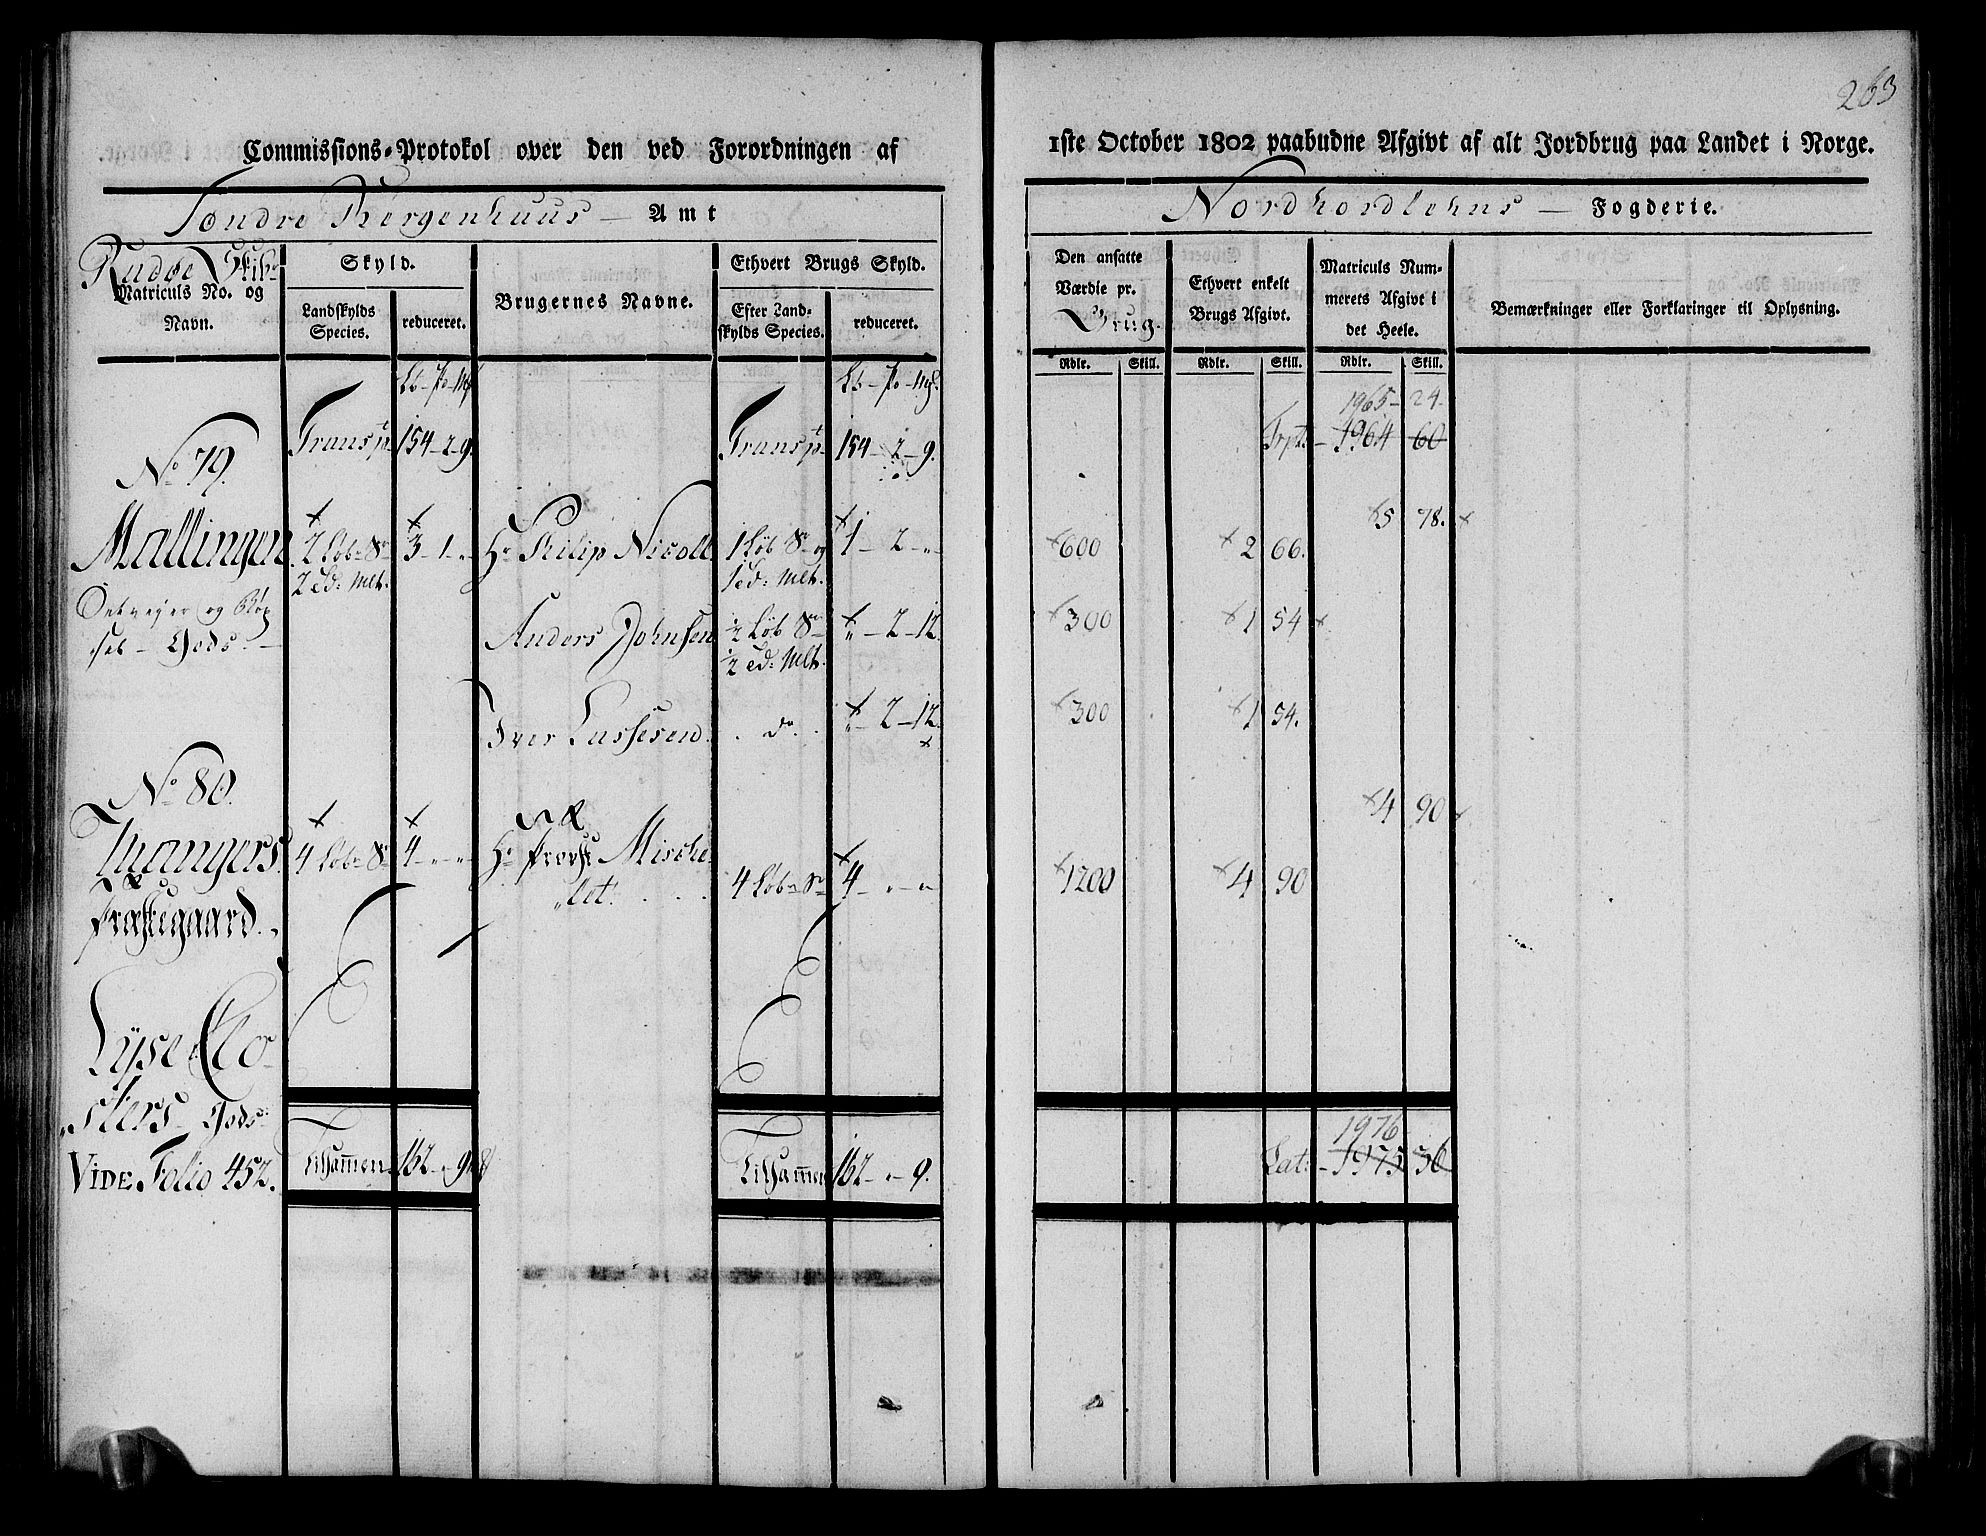 263
Commissions-Protokol over den ved Forordningen af
1ste October 1802 paabudne Afgivt af alt Jordbrug paa Landet i Norge.
Søndre Bergenhuus — Amt
Nordhordlehns — Fogderie.
Radøe Skibr
Matriculs No. og
Navn.
Skyld.
Landskylds
Species.
reduceret.
Brugernes Navne.
Ethvert Brugs Skyld.
Efter Land-
skylds Species.
reduceret.
Den ansatte
Værdie pr.
Brug.
Ethvert enkelt
Brugs Afgivt.
Matriculs Num-
merets Afgivt i
det Heele.
Bemærkninger eller Forklaringer til Oplysning.
Rdlr. Skill. Rdlr. Skill. Rdlr. Skill.
1965 - 24
Transpt 154 - 2 - 9. Transpt 154 - 2 - 9. Trpt: - 1964 60
No 79.
5 78.
Mallingen 2 Løb Sr 3 - 1 - „ Hr Philip Nicoll 1 Løb Sr og 1 - 2 - „ 600 2 66.
2 Td: Mlt. 1 Td: Mlt.
og
Gods.
Anders Johnsen ½ Løb Sr „ - 2 - 12. 300 1 54
½ Td: Mlt.
Iver Lassesen do. „ - 2 - 12. 300 1 54.
No 80.
4 90
Mangers 4 Løb Sr 4 - „ - „ Hr Provst Miche-
let. 4 Løb Sr 4 - „ - „ 1200 4 90
Præstegaard.
Lyse Clo-
sters Gods
Vide Folio 452.
Tilsammen 162 - „ - 9 Tilsammen 162 - „ - 9.
1976
Lat: - 1975 36